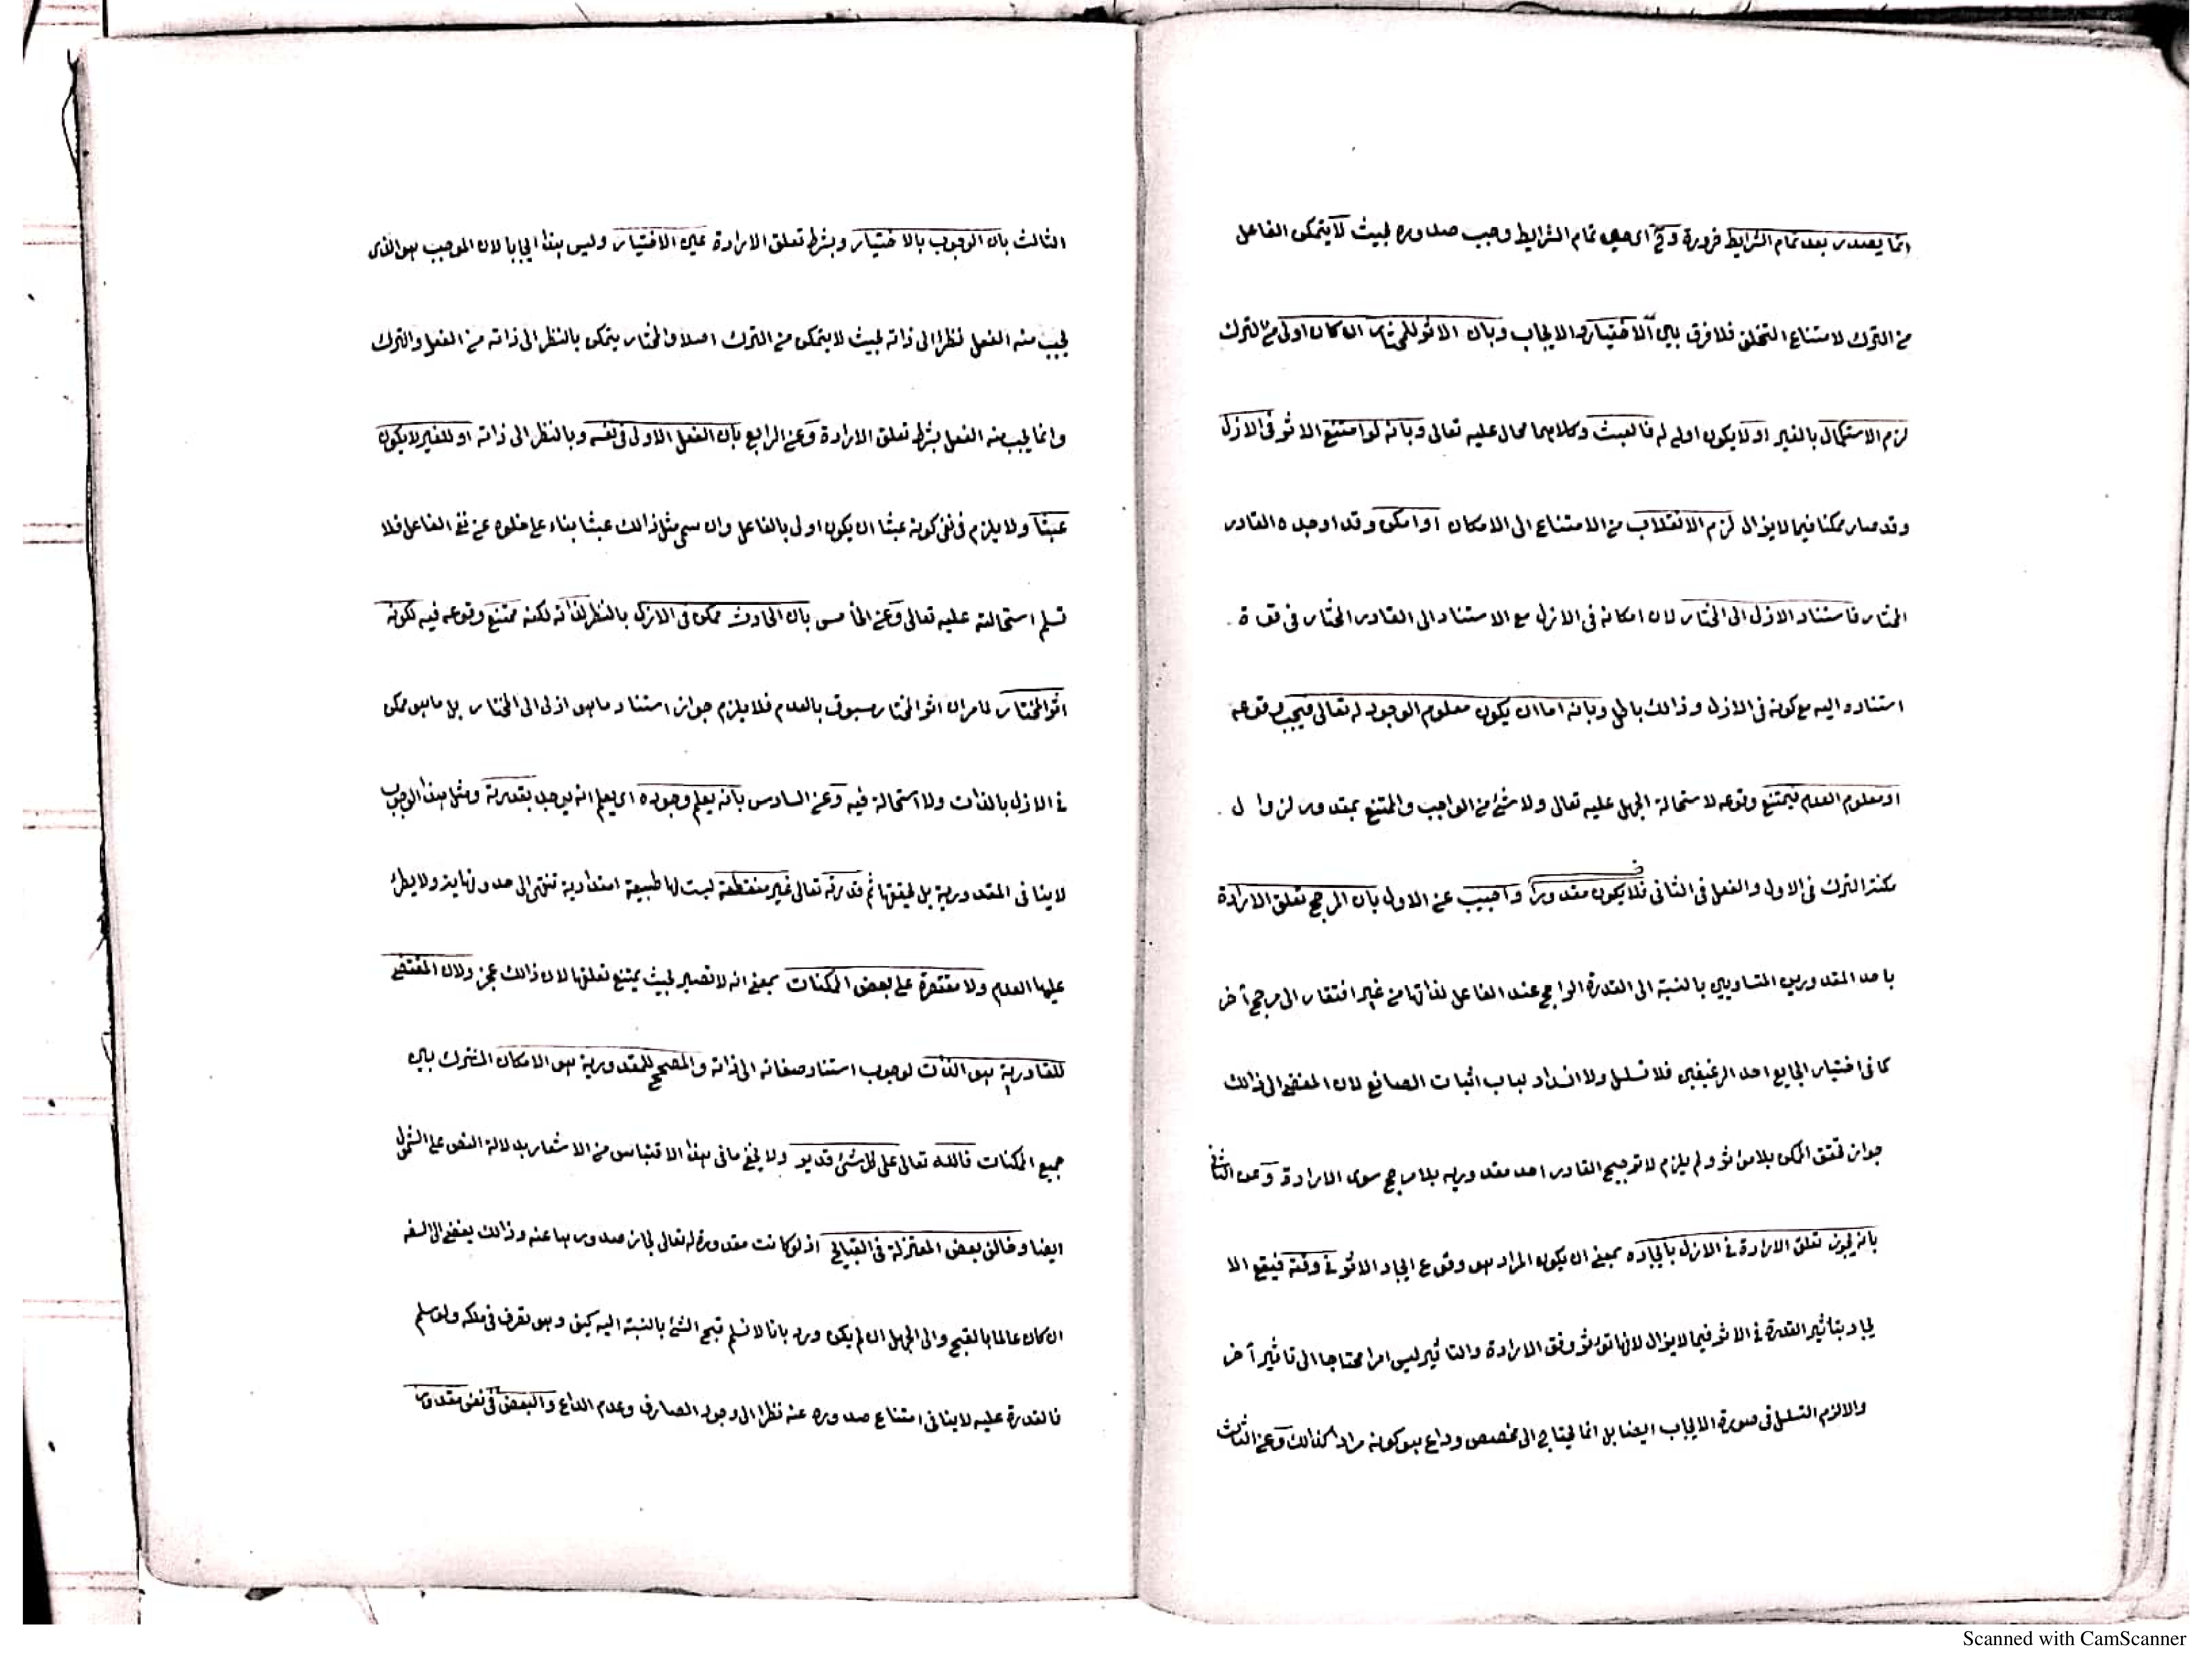 انما يصدر بعد تمام الشرايط ضرورة وح اى حين تمام الشرايط وجب صدوره بحيث لا يتمكن الفاعل
من الترك لامتناع التخلف فلا فرق بين الاختيار والايجاب وبان الاثر للمختار ان كان اولى من الترك
لزم الاستكمال بالغير او لا يكون اولى له فالعبث وكلاهما محال عليه تعالى وبانه لو امتنع الاثر فى الازل
وقد صار ممكنا فيما لايزال لزم الانقلاب من الامتناع الى الامكان او امكن وقد اوجده القادر
المختار فاستناد الازل الى المختار لان امكانه فى الازل مع الاستناد الى القادر المختار فى قوة
استناده اليه مع كونه فى الازل وذالك باطل وبانه اما ان يكون معلوم الوجود له تعالى فيجب وقوعه
او معلوم العدم فيمتنع وقوعه لاستحالة الجهل عليه تعالى ولا شئ من الواجب والممتنع بمقدور لزوال
مكنة الترك فى الاول والفعل فى الثانى فلا يكون مقدورا واجيب عن الاول بان المرجح تعلق الارادة
باحد المقدورين المتساويين بالنسبة الى القدرة الراجح عند الفاعل لذاتها من غير افتقار الى مرجح آخر
كما فى اختيار الجايع احد الرغيفين فلا تسلسل ولا انسداد لباب اثبات الصانع لان المفضى الى ذالك
جواز تحقق الممكن بلا مؤثر ولم يلزم لا ترجيح القادر احد مقدوريه بلا مرجح سوى الارادة وعن الثانى
بانه يجوز تعلق الارادة فى الازل بايجاده بمعنى ان يكون المراد هو وقوع ايجاد الاثر فى وقته فيقع الا
يجاد بتاثير القدرة فى الاثر فيما لايزال لانها تؤثر وفق الارادة والتاثير ليس امرا محتاجا الى تاثير آخر
والا لزم التسلسل فى صورة الايجاب ايضا بل انما يحتاج الى مخصص وداع هو كونه مرادا كذالك وعن الثالث
الثالث بان الوجوب بالاختيار وبشرط تعلق الارادة عين الاختيار وليس هذا ايجابا لان الموجب هو الذى
يجب منه الفعل نظرا الى ذاته بحيث لا يتمكن من الترك اصلا والمختار يتمكن بالنظر الى ذاته من الفعل والترك
وانما يجب منه الفعل بشرط تعلق الارادة وعن الرابع بان الفعل الاولى فى نفسه وبالنظر الى ذاته او للغير لا يكون
عبثا ولا يلزم فى نفى كونه عبثا ان يكون اولى بالفاعل وان سمى مثل ذالك عبثا بناء على خلوه عن نفع الفاعل فلا
نسلم استحالته عليه تعالى وعن الخامس بان الحادث ممكن فى الازل بالنظر لذاته لكنه ممتنع وقوعه فيه لكونه
اثر المختار لما مر ان اثر المختار مسبوق بالعدم فلا يلزم جواز استناد ما هو ازلى الى المختار بل ما هو ممكن
فى الازل بالذات ولا استحالة فيه وعن السادس بانه يعلم وجوده اى يعلم انه يوجد بقدرته ومثل هذا الوجوب
لا ينافى المقدورية بل يحققها ثم قدرته تعالى غير منقطعة ليست لها طبيعة امتدادية تنتهى الى حد ونهاية ولا يطرئ
عليها العدم ولا مقتصرة على بعض الممكنات بمعنى انه لا تصير بحيث يمتنع تعلقها لان ذالك عجز ولان المقتضى
للقادرية هو الذات لوجوب استناد صفاته الى ذاته والمصحح للمقدورية هو الامكان المشترك بين
جميع الممكنات فالله تعالى على كل شئ قدير ولا يخفى ما فى هذا الاقتباس من الاشعار بدلالة النص على الشمول
ايضا وخالف بعض المعتزلة فى القبائح اذ لو كانت مقدورة له تعالى لجاز صدورها عنه وذالك يفضى الى السفه
ان كان عالما بالقبح والى الجهل ان لم يكن ورد بانا لا نسلم قبح الشئ بالنسبة اليه كيف وهو تصرف فى ملكه ولو سلم
فالقدرة عليه لا ينافى امتناع صدوره عنه نظرا الى وجود الصارف وعدم الداع والبعض فى نفس مقدور
Scanned with CamScanner